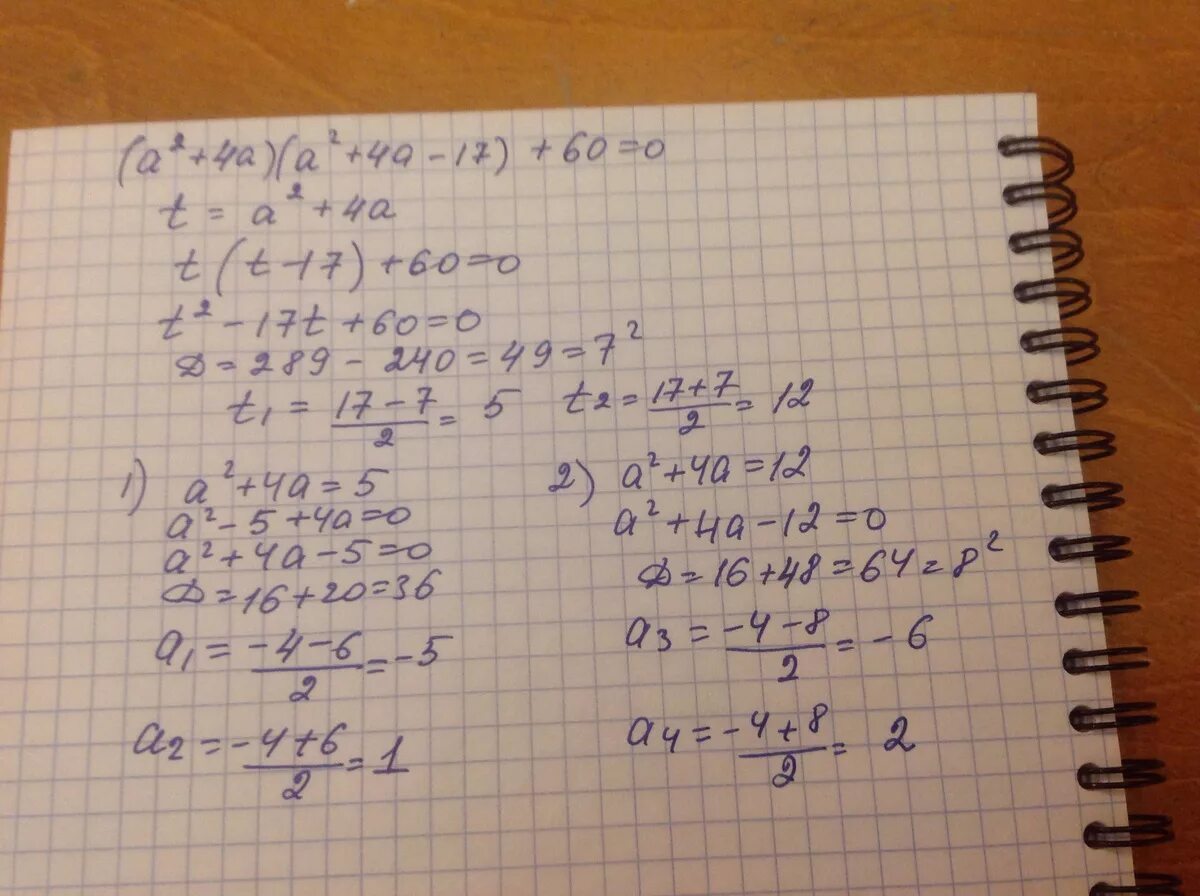 (a² + 4a)(a² + 4a - 17) + 60 = 0
t = a² + 4a
t (t - 17) + 60 = 0
t² - 17t + 60 = 0
D = 289 - 240 = 49 = 7²
t₁ = (17 - 7)/2 = 5 t₂ = (17 + 7)/2 = 12
1) a² + 4a = 5
a² - 5 + 4a = 0
a² + 4a - 5 = 0
D = 16 + 20 = 36
a₁ = (-4 - 6)/2 = -5
a₂ = (-4 + 6)/2 = 1
2) a² + 4a = 12
a² + 4a - 12 = 0
D = 16 + 48 = 64 = 8²
a₃ = (-4 - 8)/2 = -6
a₄ = (-4 + 8)/2 = 2